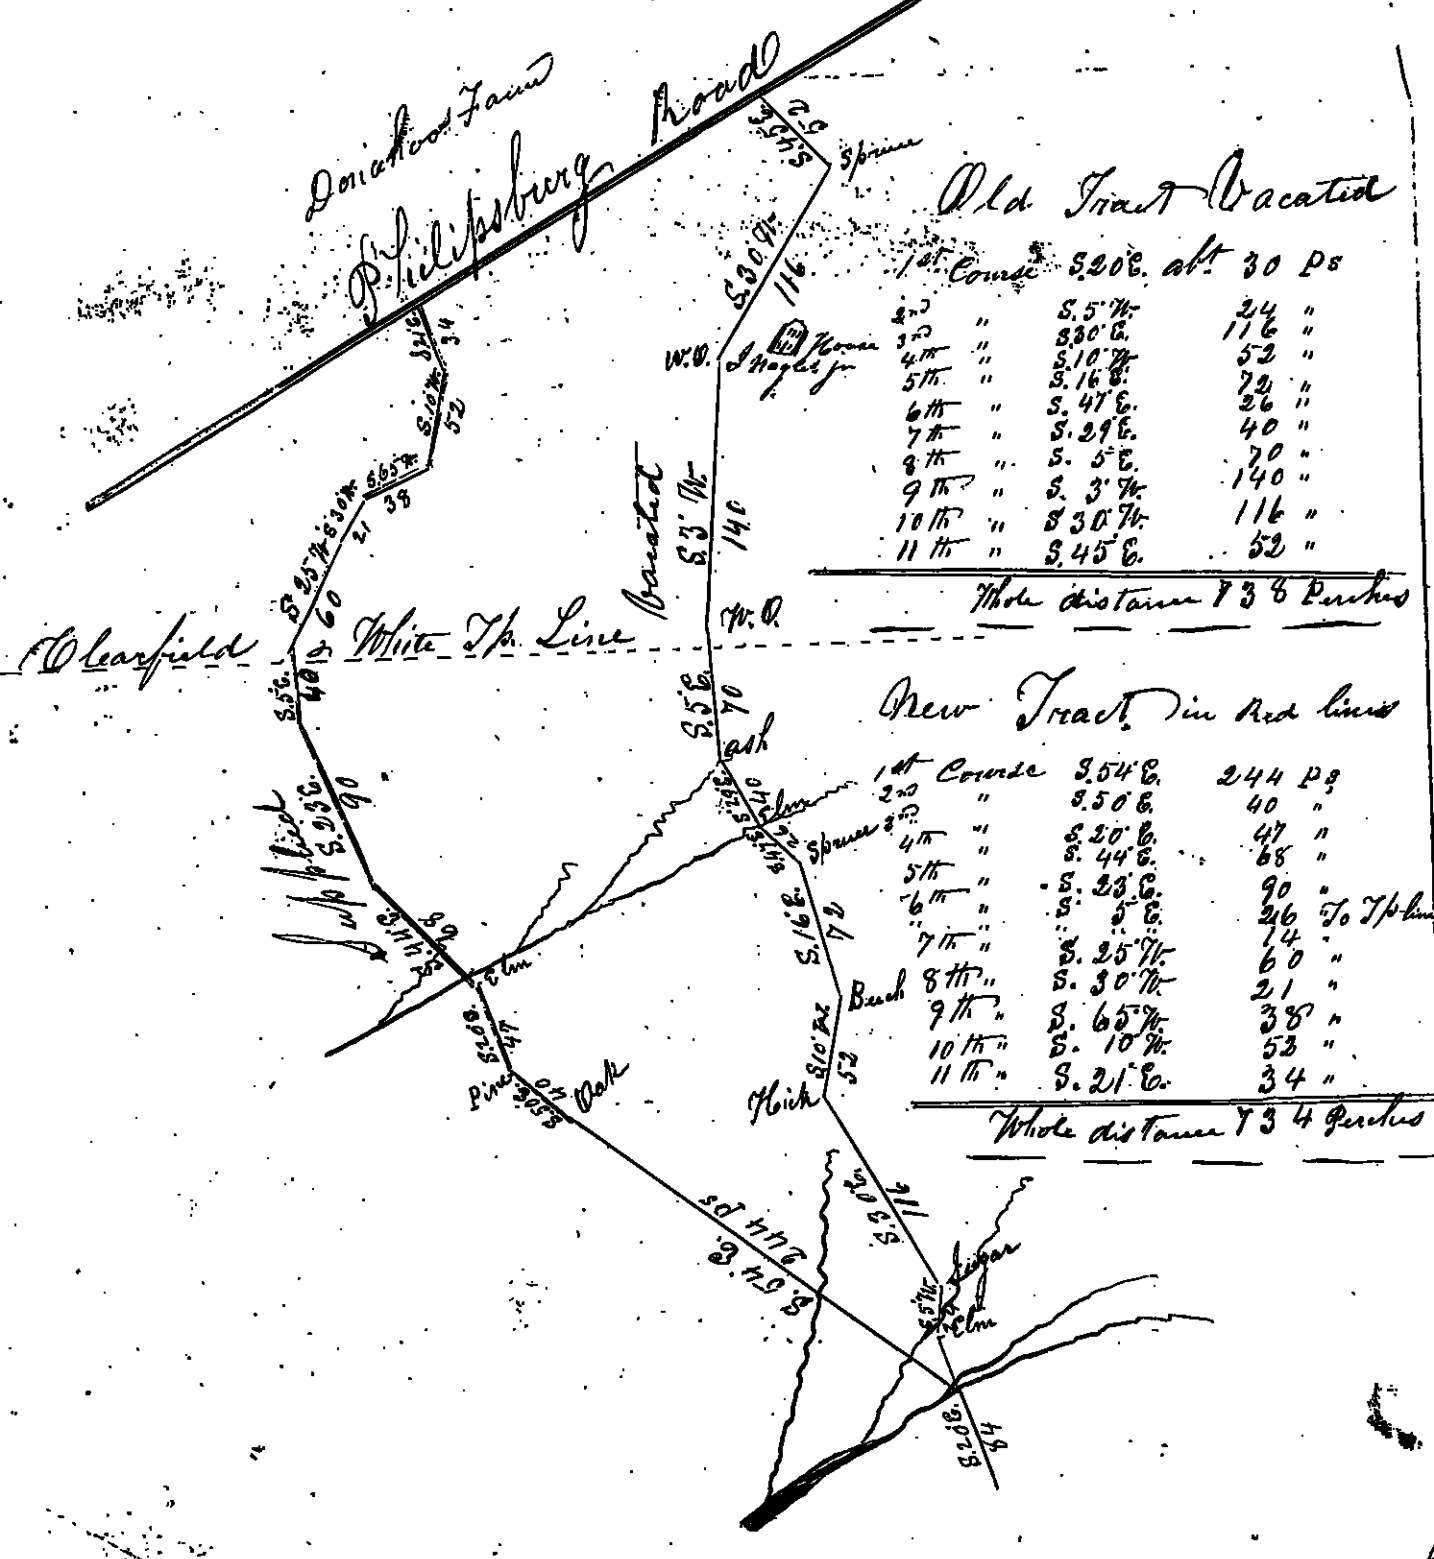 Donahoos Farm
Philipsburg Road
S.45E.
52
Spruce
S.30.W.
116
House
W.O.
J Nagles jr
S21E.
34
S.10.W.
52
S.65W.
38
S30W
21
S.25W
60
Vacated
S.3 W.
140
W.O.
Clearfield & White Tp. Line
S.5E.
40
S.5E.
70
ash
S.29E.
40
Elm
S.47E.
26
Spruce
Supplied
S.23E.
90
S.44E.
68
Elm
S.16E.
72
Beech
S.20E.
47
Pine
S.50E.
40
Oak
S10W.
52
Hick
S.30E.
116
244 ps
S.54 E.
Sugar
S.5W.
24
Elm
S.20E.
84
Old Tract Vacated
1st Course S.20E. abt 30 Ps
2nd " S.5W. 24 "
3rd " S30E. 116 "
4th " S.10W. 52 "
5th " S.16E. 72 "
6th " S.47E. 26 "
7th " S.29E. 40 "
8th " S.5E. 70 "
9th " S.3W. 140 "
10th " S30W. 116 "
11th " S.45E. 52 "
Whole distance 738 Perches
New Tract in Red lines
1st Course S.54E. 244 Ps
2nd " S.50E. 40 "
3rd " S.20E. 47 "
4th " S.44E. 68 "
5th " S.23E. 90 "
6th " S.5E. 26 " To Tp line
" " " " 14 "
7th " S.25W. 60 "
8th " S.30W. 21 "
9th " S.65W. 38 "
10th " S.10W. 52 "
11th " S.21E. 34 "
Whole distance 734 Perches